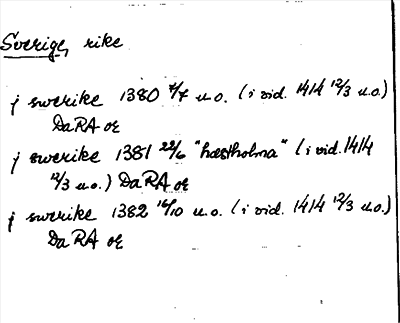 Sverige, rike
j swerike 1380 7/7 u.o. (i vid. 1414 12/3 u.o.)
DaRA oe
j swerike 1381 22/6 "hæstholma" (i vid. 1414
12/3 u.o.) DaRA oe
j swerike 1382 16/10 u.o. (i vid. 1414 12/3 u.o.)
DaRA oe